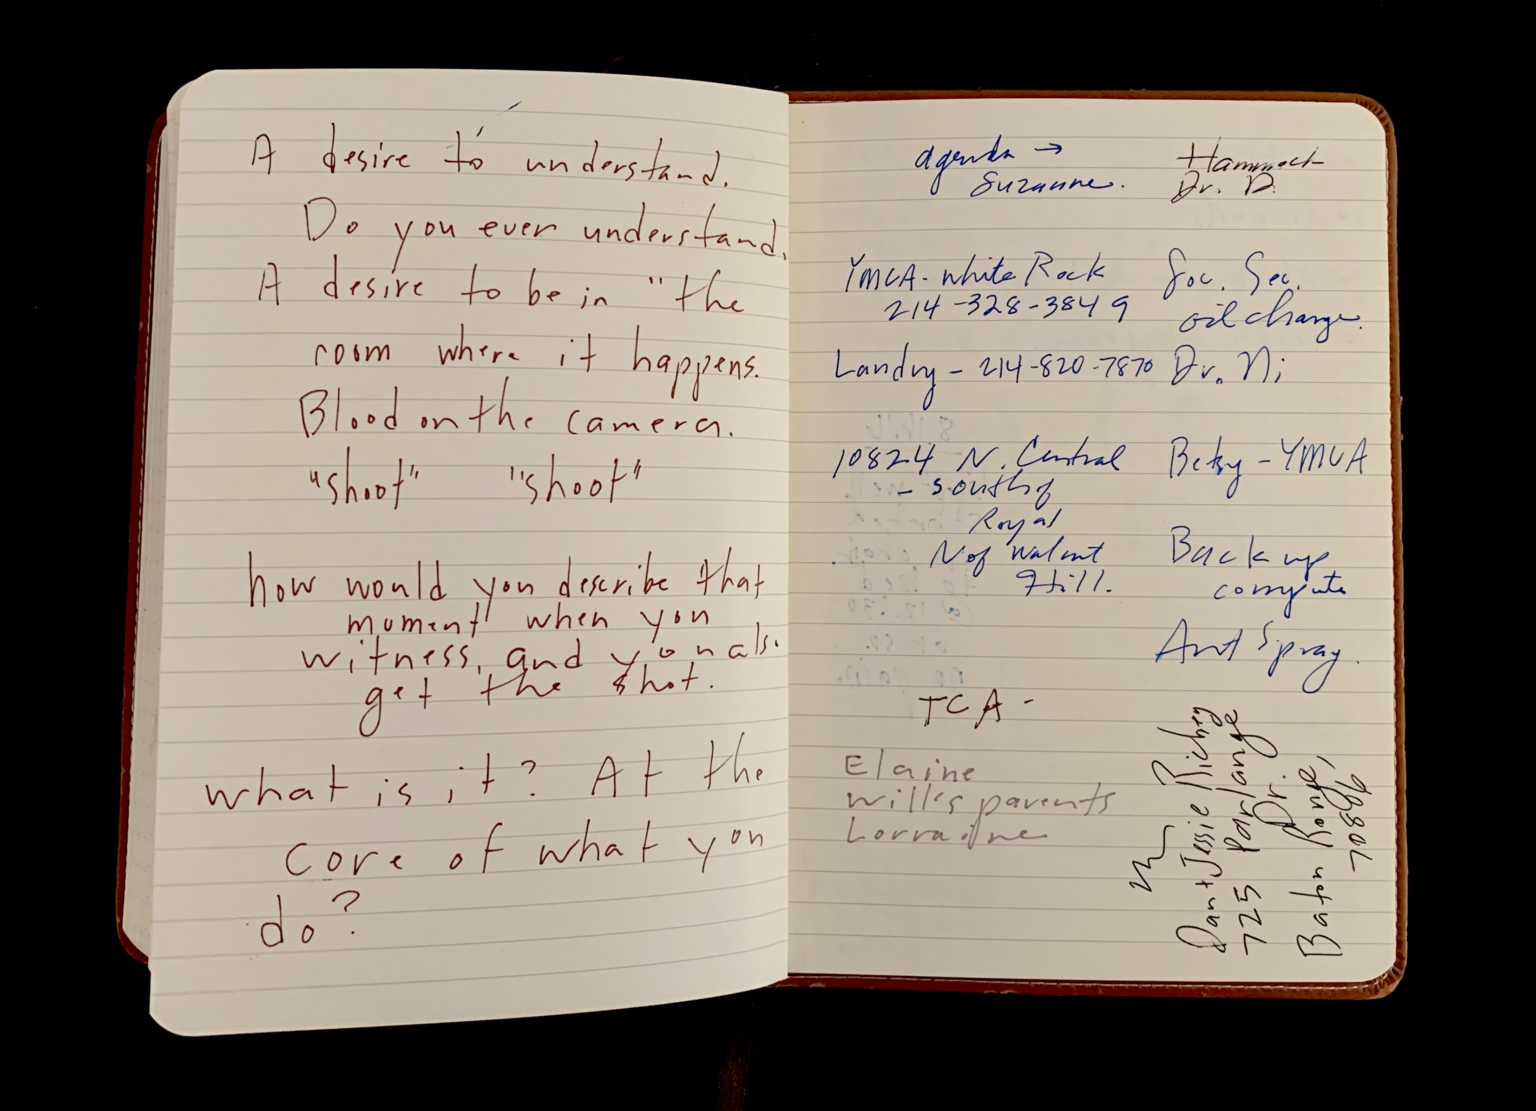 A desire to understand.
Do you ever understand.
A desire to be in "the
room where it happens.
Blood on the camera.
"shoot" "shoot"
how would you describe that
moment when you
witness, and you als.
get the shot.
what is it? At the
core of what you
do?
agenda →
Suzanne.
Hammock
Dr. D.
YMCA - White Rock
214-328-3849
Landry - 214-820-7870
10824 N. Central
- south of
Royal
N of Walnut
Hill.
Soc. Sec.
oil change.
Dr. Ni
Betsy - YMCA
Back up
compute
Ant Spray.
TCA -
Elaine
Will's parents
Lorraine
Dan + Jessie Richey
725 Parlange
Dr.
Baton Rouge,
70806